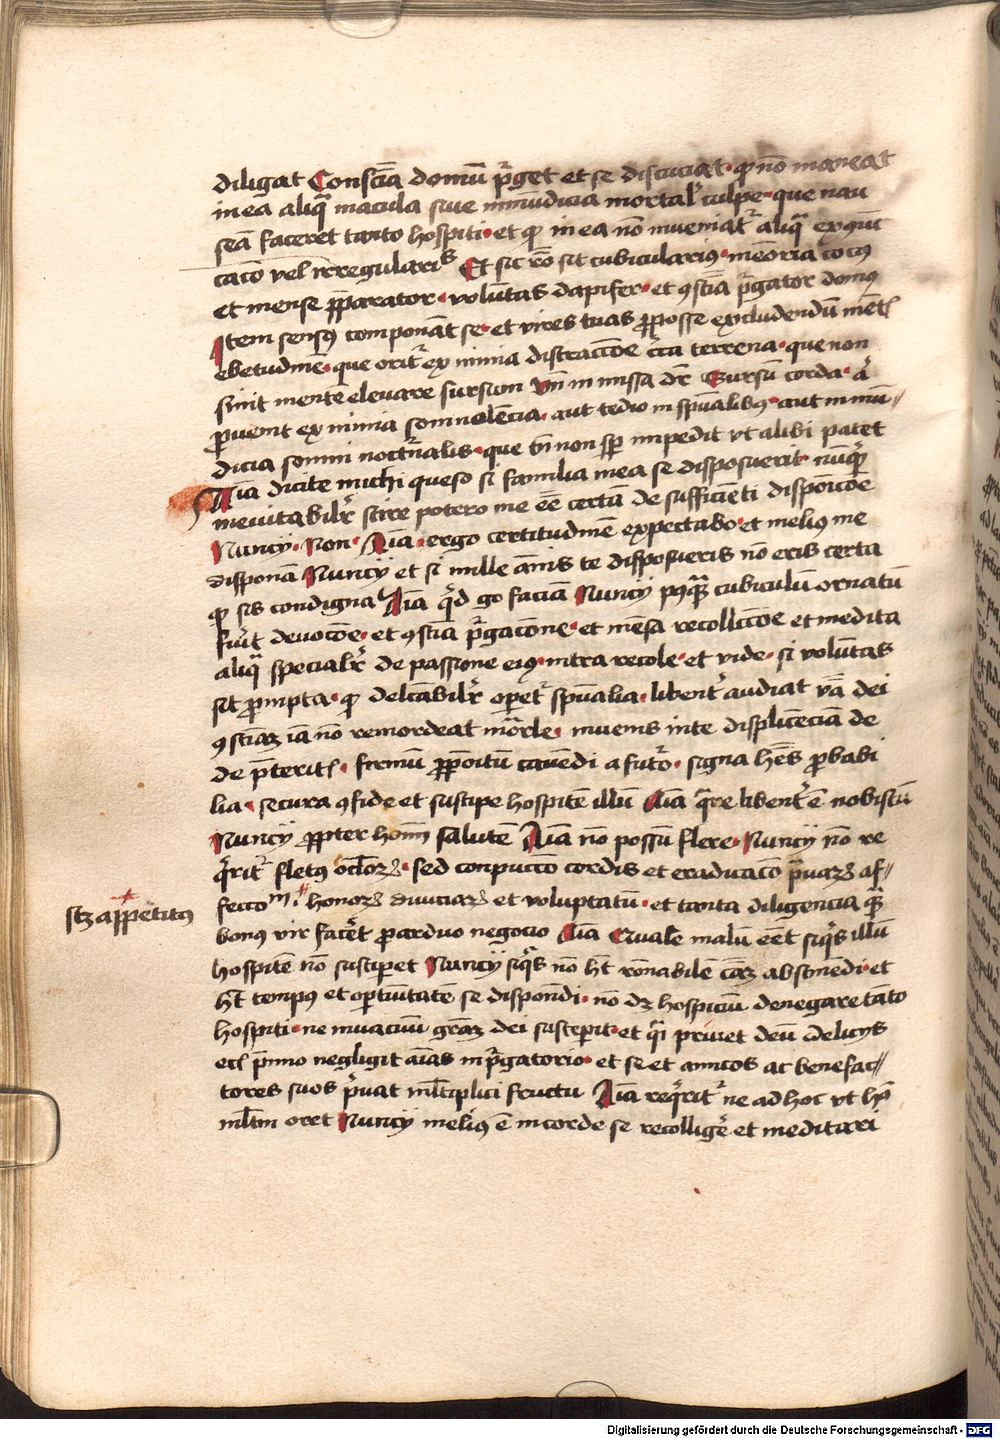 diligat Consciā domū p̄rget et se discuciat · qͥ nō maneat
in ea aliqͣ macula siue inmūdicia mortalꝭ culpe · que nau
seā faceret tanto hospiti · et qͥ in ea nō inueniatᷣ aliqͣ
cacō vel irregularis Et sic rō sit cubicularius · memoria cocus
et mense p̄parator · voluntas dapifer · et ꝯsciā p̄rgator domus
Item sensus componāt se · et vires tuas ꝓposse excludendū mētꝭ
ebetudinē · que oritᷣ ex nimia distraccōe circa terrena · que non
sinit mentē eleuare sursum vn̄ in missa dr̄ Sursū corda · aͣ
ꝓuenit ex nimia somnolēcia · aut tedio in spūalibus · aut inmū//
dicia somni nocturnalis · que tn̄ non sp̄ impedit vt alibi patet
Aīa dicite michi queso si familia mea se disposuerit nūqͥd
ineuitabilᷣr scire potero me eē certā de sufficienti disposicōe
Nuncij · Non · Aīa · ergo certitudinē expectabo · et melius me
disponā Nuncij et si mille annis te disposueris nō eris certa
qͥ sis condigna Aīa qͥd go faciā Nuncij pꝰqͣ cubiculū ornatū
fuerit deuocōe · et ꝯsciā p̄rgacōne · et mēsa recolliccōe et medita
aliqͣ specialᷣr de passione eius · intra recole · et vide · si voluntas
sit ꝓmpta · qͥ delcābilᷣr operetᷣ spūalia · libentᷣ audiat v̄ba dei
ꝯsciā iā nō remordeat mortale · inuenis in te displicēciā de
de p̄teritꝭ · firmū ꝓpositū cauēdi a futuro · signa hn̄s ꝓbabi
lia · secura ꝯfide et suscipe hospitē illū Aīa qͣre libentᷣ ē nobiscū
Nuncij ꝓpter homīn salutē Aīa nō possū flere · Nuncij nō re
qͥritᷣ fletus oclorꝝ · sed conpuccō cordis et eradicacō p̄uarꝝ af//
feccōm honorꝝ diuiciarꝝ et voluptatū · et tanta diligencia qͣ
stz appetitus
bonus vir facēt ꝓ arduo negocio Aīa Quale malū eēt siqͥs illū
hospitē nō susciperet Nuncij siqͥs nō ht̄ rōnabilē cāꝫ abstinēdi · et
ht̄ tempus et oportunitatē se disponēdi · nō dꝫ hospiciū denegare tāto
hospiti · ne in vacuū grāꝫ dei susceperit · et qͥ priuet deū delicijs
negligit aīas in p̄rgatorio · et se et amicos ac benefac//
tores suos p̄uat mltiplici fructu Aīa reqͥritᷣ ne ad hoc vt hō
mltm oret Nuncij melius ē in corde se recolligere et meditari
Digitalisierung gefördert durch die Deutsche Forschungsgemeinschaft - DFG